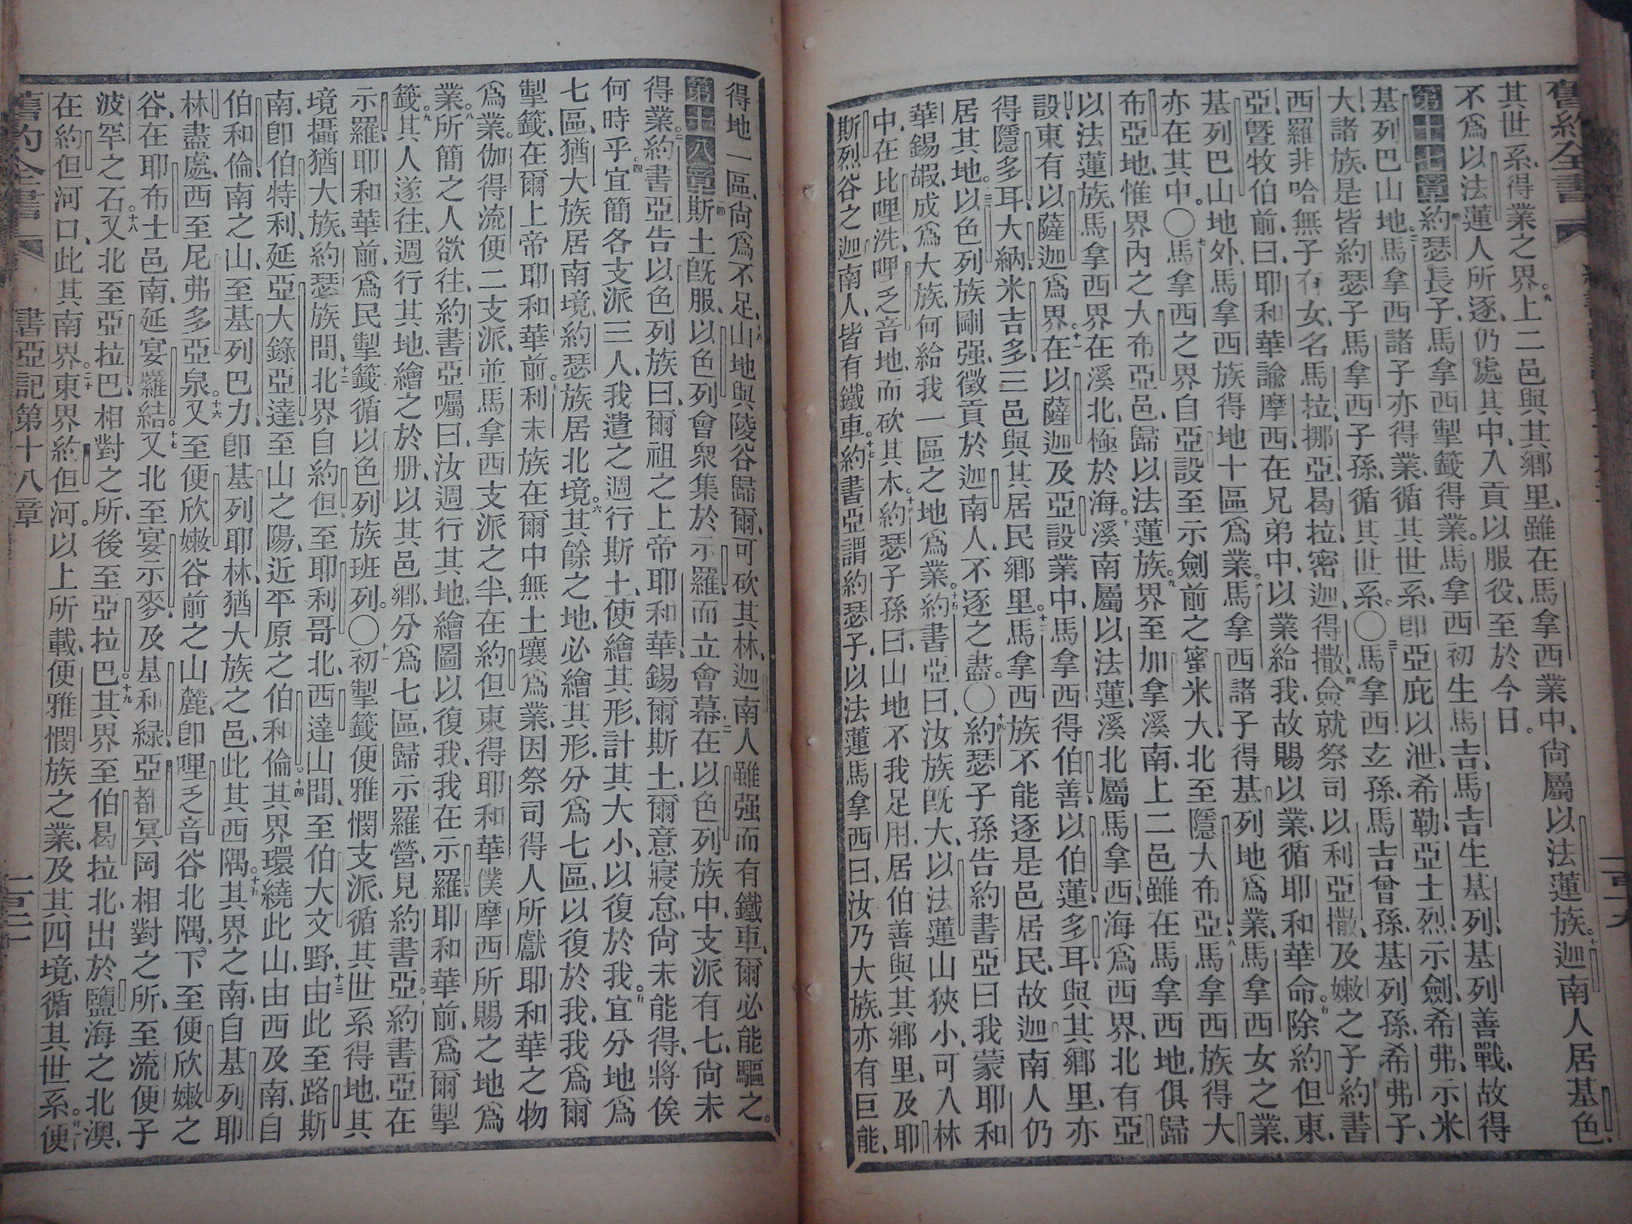 舊約全書
其世系、得業之界。九上二邑與其鄉里、雖在馬拿西業中、尙屬以法蓮族。十迦南人居基色、
不爲以法蓮人所逐、仍處其中、入貢以服役、至於今日。
第十七章 約瑟長子馬拿西掣籤得業。馬拿西初生馬吉、馬吉生基列、基列善戰、故得
基列巴山地。二馬拿西諸子亦得業、循其世系、卽亞庇以泄希勒亞士烈示劍希弗示米
大諸族、是皆約瑟子馬拿西子孫、循其世系。〇三馬拿西玄孫、馬吉曾孫、基列孫、希弗子、
西羅非哈無子有女、名馬拉挪亞曷拉密迦得撒、四僉就祭司以利亞撒、及嫩之子約書
亞、曁牧伯前、曰、耶和華諭摩西、在兄弟中、以業給我、故賜以業、循耶和華命。五除約但東、
基列巴山地外、馬拿西族得地十區爲業。六馬拿西諸子得基列地爲業、馬拿西女之業、
亦在其中。〇七馬拿西之界、自亞設至示劍前之蜜米大、北至隱大布亞。八馬拿西族得大
布亞地、惟界內之大布亞邑、歸以法蓮族。九界至加拿溪南、上二邑雖在馬拿西地、俱歸
以法蓮族、馬拿西界在溪北、極於海。十溪南屬以法蓮、溪北屬馬拿西、海爲西界、北有亞
設、東有以薩迦爲界。十一在以薩迦及亞設業中、馬拿西得伯善、以伯蓮、多耳、與其鄉里、亦
得隱多耳、大納、米吉多、三邑與其居民鄉里。十二馬拿西族不能逐是邑居民、故迦南人仍
居其地。十三以色列族剛强、徵貢於迦南人、不逐之盡。〇十四約瑟子孫告約書亞曰、我蒙耶和
華錫嘏、成爲大族、何給我一區之地爲業。十五約書亞曰、汝族旣大、以法蓮山狹小、可入林
中、在比哩洗、呷乏音地、而砍其木。十六約瑟子孫曰、山地不我足用、居伯善與其鄉里、及耶
斯烈谷之迦南人、皆有鐵車。十七約書亞謂約瑟子、以法蓮馬拿西曰、汝乃大族、亦有巨能、
得地一區、尙爲不足、十八山地與陵谷歸爾、可砍其林、迦南人雖强而有鐵車、爾必能驅之。
第十八章 斯土旣服、以色列會衆集於示羅、而立會幕、二在以色列族中、支派有七、尙未
得業。三約書亞告以色列族曰、爾祖之上帝耶和華、錫爾斯土、爾意寢怠、尙未能得、將俟
何時乎、四宜簡各支派三人、我遣之週行斯土、使繪其形、計其大小、以復於我。五宜分地爲
七區、猶大族居南境、約瑟族居北境。六其餘之地、必繪其形、分爲七區、以復於我、我爲爾
掣籤、在爾上帝耶和華前。七利未族在爾中無土壤爲業、因祭司得人所獻耶和華之物
爲業。伽得、流便、二支派、並馬拿西支派之半、在約但東、得耶和華僕摩西所賜之地爲
業。八所簡之人欲往、約書亞囑曰、汝週行其地、繪圖以復我、我在示羅、耶和華前、爲爾掣
籤。九其人遂往、週行其地、繪之於册、以其邑鄉、分爲七區、歸示羅營、見約書亞。十約書亞在
示羅、耶和華前、爲民掣籤、循以色列族班列。〇十一初掣籤、便雅憫支派、循其世系得地、其
境攝猶大族、約瑟族間、十二北界自約但、至耶利哥北、西達山間、至伯大文野。十三由此至路斯
南、卽伯特利、延亞大錄亞達、至山之陽、近平原之伯和倫。十四其界環繞此山、由西及南、自
伯和倫南之山、至基列巴力、卽基列耶林、猶大族之邑、此其西隅。十五其界之南、自基列耶
林盡處、西至尼弗多亞泉。十六又至便欣嫩谷前之山麓、卽哩乏音谷北隅、下至便欣嫩之
谷、在耶布士邑南、延宴羅結。十七又北至宴示麥、及基利綠、亞都冥岡相對之所、至流便子
波罕之石。十八又北至亞拉巴、相對之所、後至亞拉巴。十九其界至伯曷拉北、出於鹽海之北澳、
在約但河口、此其南界。二十東界約但河。以上所載、便雅憫族之業、及其四境、循其世系。便
舊約全書 書亞記第十八章 二百二十